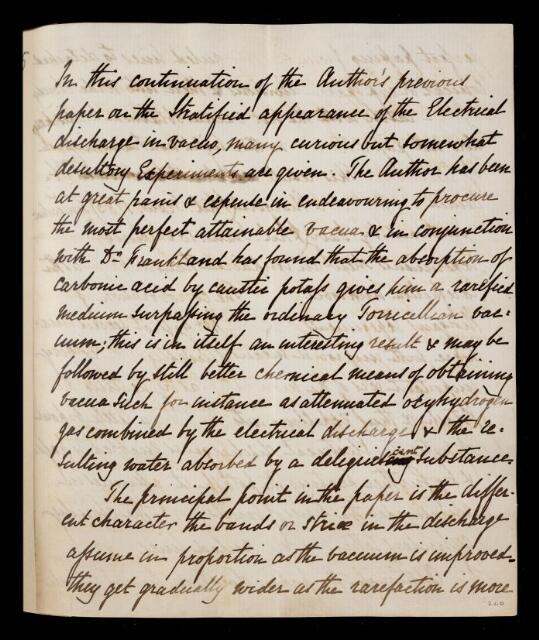 In this continuation of the Author's previous
paper on the Stratified appearance of the Electrical
discharge in vacuo, many curious but somewhat
desultory Experiments are given. The Author has been
at great pains & expense in endeavouring to procure
the most perfect attainable vacua & in conjunction
with Dr. Frankland has found that the absorption of
Carbonic acid by caustic potass gives him a rarefied
medium surpassing the ordinary Torricellian vac-
uum; this is in itself an interesting result & may be
followed by still better chemical means of obtaining
vacua such for instance as attenuated oxyhydrogen
gas combined by the electrical discharge & the re-
sulting water absorbed by a deliquescent substance.
The principal point in the paper is the differ-
ent character the bands or striæ in the discharge
assume in proportion as the vacuum is improved.
they get gradually wider as the rarefaction is more